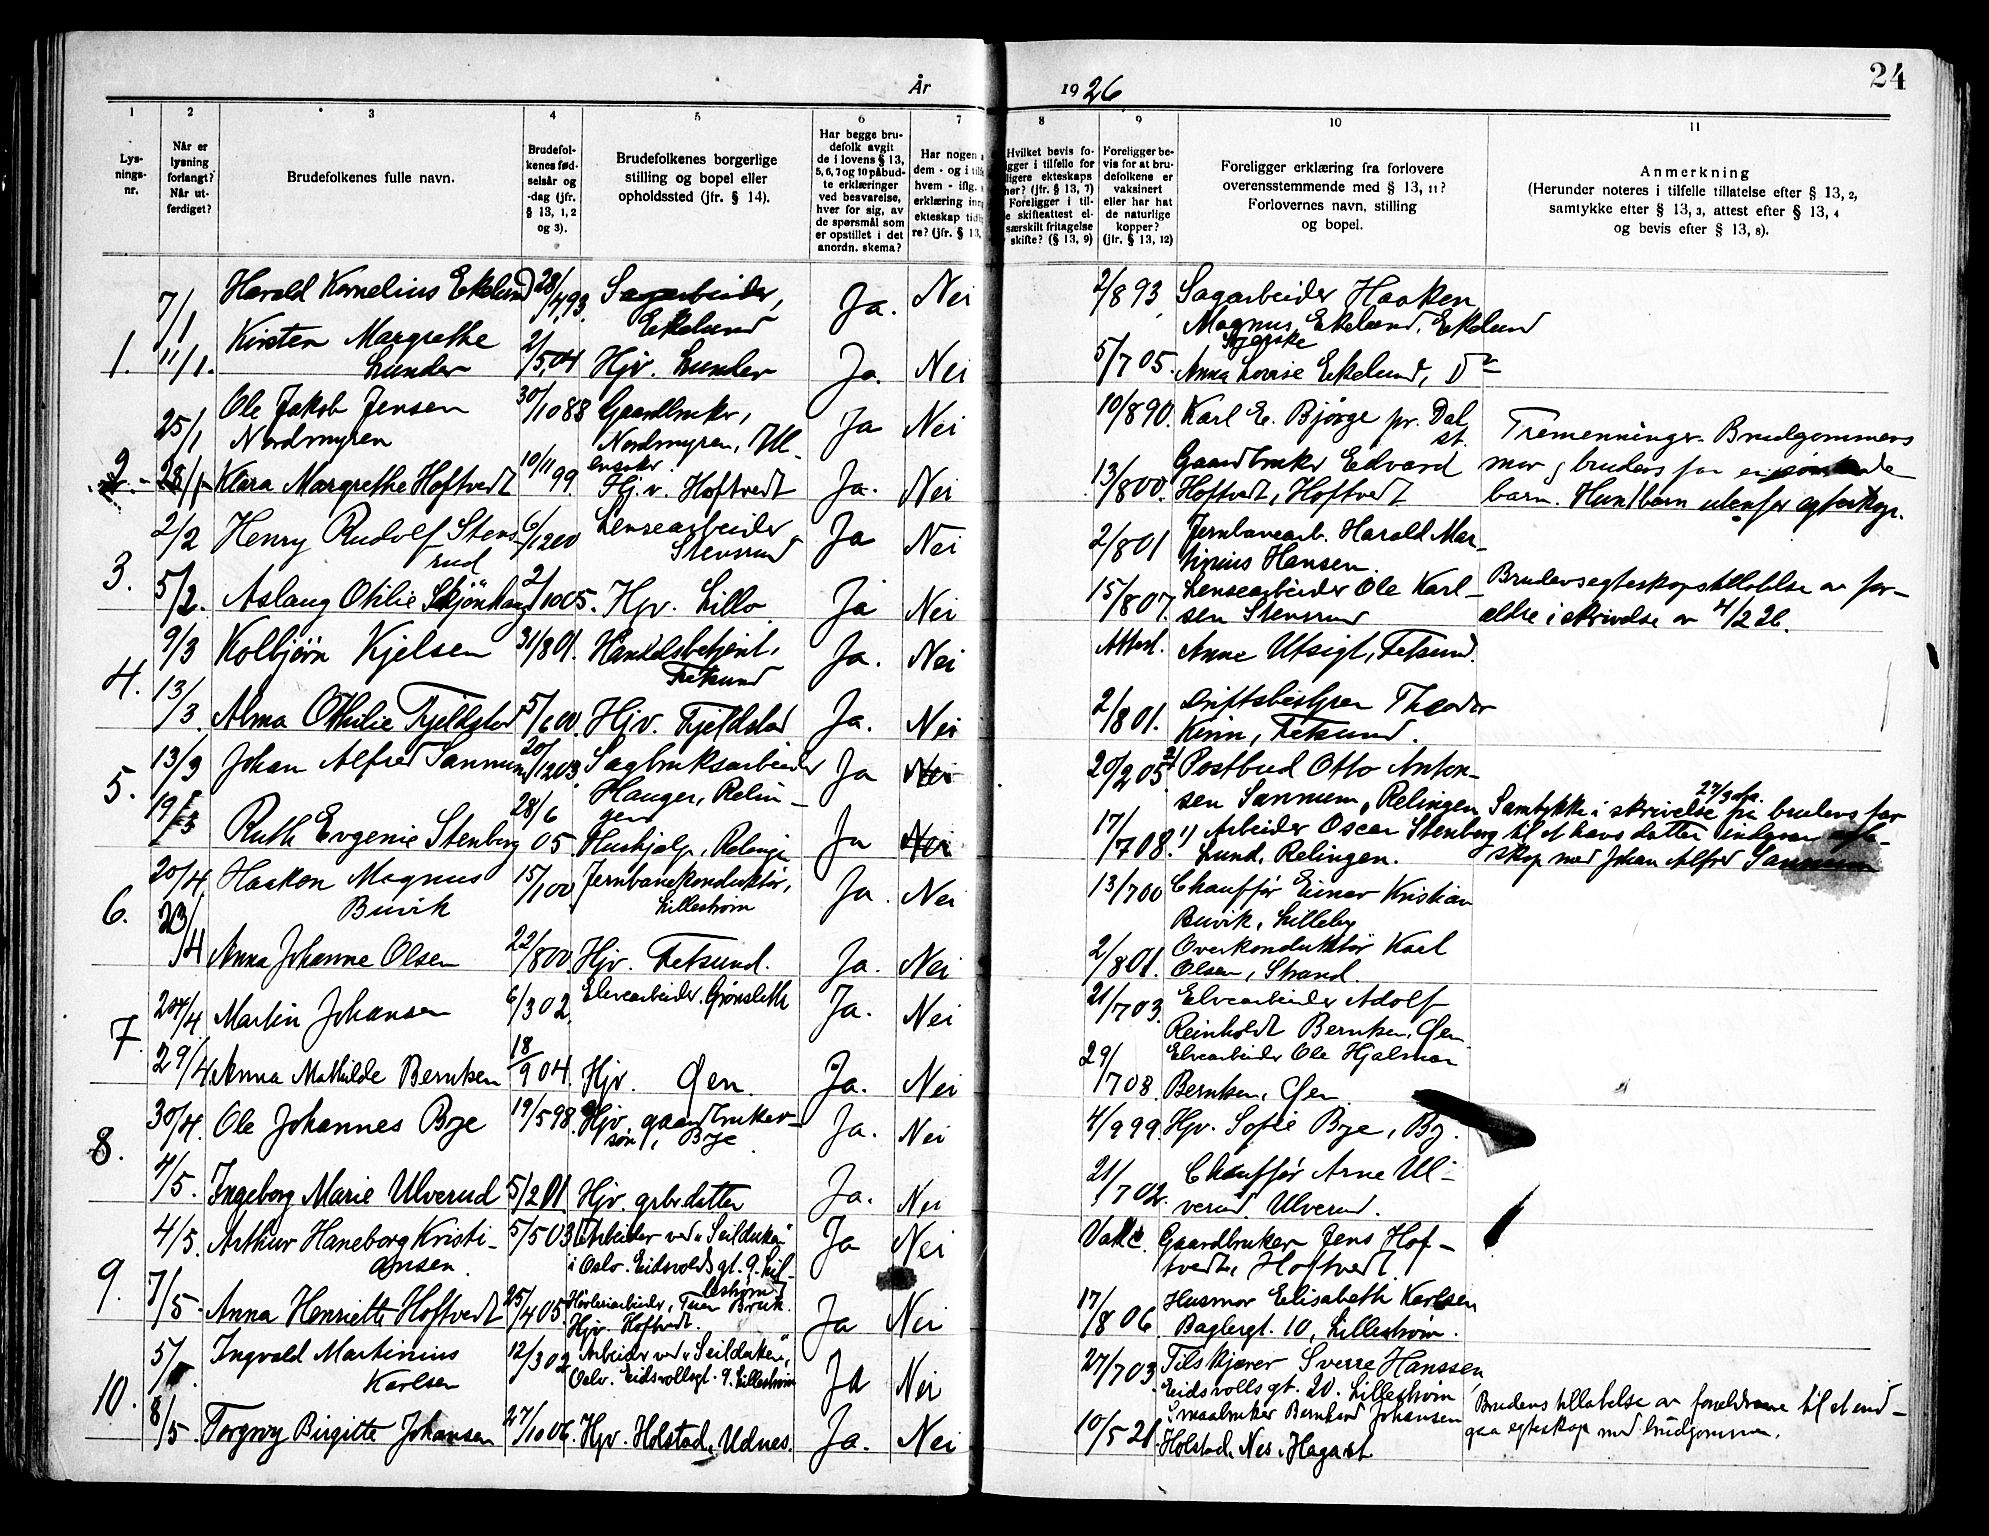 År 1926
24
1 2 3 4 5 6 7 8 9 10 11
Lys-
nings-
nr.
Når er
lysning
forlangt?
Når ut-
ferdiget?
Brudefolkenes fulle navn.
Brudefol-
kenes fød-
selsår og
-dag (jfr.
§ 13, 1, 2
og 3).
Brudefolkenes borgerlige
stilling og bopel eller
opholdssted (jfr. § 14).
Har begge bru-
defolk avgit
de i lovens § 13,
5, 6, 7 og 10 påbud-
te erklæringer
ved besvarelse,
hver for sig, av
de spørsmål som
er opstillet i det
anordn. skema?
Har nogen
dem - og i
hvem - iflg.
erklæring
ekteskap
re? (jfr. § 13,
Hvilket bevis fo-
gger i tilfelle for
ligere ekteskaps
her? (jfr. § 13, 7)
Foreligger i til-
e skifteattest el-
særskilt fritagelse
skifte? (§ 13, 9)
Foreligger be-
vis for at bru-
defolkene er
vaksinert
eller har hat
de naturlige
kopper?
(jfr. § 13, 12)
Foreligger erklæring fra forlovere
overensstemmende med § 13, 11?
Forlovernes navn, stilling
og bopel.
Anmerkning
(Herunder noteres i tilfelle tillatelse efter § 13, 2,
samtykke efter § 13, 3, attest efter § 13, 4
og bevis efter § 13, 8).
7/1 Harald Kornelius Ekelund 28/4 93. Sagarbeider, Ja. Nei 2/8 93 Sagarbeider Haaken
Ekelund Magnus Ekelund, Ekelund
1. 11/1. Kirsten Margrethe 2/5 04 Hjv. Lunder Ja. Nei 5/7 05. Syerske
Lunder Anna Lovise Ekelund, Do
25/1 Ole Jakob Jensen 30/10 88 Gaardbruker, Ja Nei 10/8 90. Karl E. Bjørge pr. Dal
Nordmyren Nordmyren, Ul- st. Tremenninger. Brudgommens
2. 28/1 Klara Margrethe Hoftvedt 10/11 99 ensaker. Gaardbruker Edvard mor og brudens far er
Hj.v. Hoftvedt Ja. Nei 13/8 00. Hoftvedt, Hoftvedt barn. Hun barn utenfor egteskap.
2/2 Henry Rudolf Stens- 6/12 00 Lensearbeider Ja Nei 2/8 01 Jernbanearb. Harald Mar-
rud Stensrud tinius Hansen.
3. 5/2. Aslaug Otilie Skjönhaug 2/10 05. Hjv. Lillo Ja Nei 15/8 07. Lensearbeider Ole Karl- Brudens egteskapstillatelse av for-
sen Stensrud ældre i skrivelse av 4/2 26.
9/3 Kolbjørn Kjelsen 31/8 01. Handelsbetjent, Ja. Nei Attest. Anne Utsigt, Fetsund.
Fetsund
4. 13/3. Alma Othilie Fjeldstad 5/6 00. Hjv. Fjeldstad Ja. Nei 2/8 01. Driftsbestyrer Theodor
Kinn, Fetsund.
5. 13/3 Johan Alfred Sannum 20/12 03. Sagbruksarbeider Ja Nei 20/2 05 Postbud Otto Anton-
Hauger, Relin- sen Sannum, Relingen
gen 27/3
19/3 Ruth Evgenie Stenberg 28/6 05 Hushjelp, Relingen Ja Nei 17/7 08. 1) Arbeider Oscar Stenberg Samtykke i skrivelse fra brudens far
Lund, Relingen. til at hans datter indgaar egte-
skap med Johan Alfred Sannum
6. 20/4. Haakon Magnus 15/1 00 Jernbanekonduktør, Ja. Nei 13/7 00 Chauffør Einar Kristian
Buvik Lillestrøm Buvik, Lilleby
23/4 Anna Johanne Olsen 22/8 00 Hjv. Fetsund. Ja. Nei 2/8 01. Overkonduktør Karl
Olsen, Strand.
7. 24/4 Martin Johansen 6/3 02. Elvearbeider. Grönsleth Ja. Nei 21/7 03. Elvearbeider Adolf
Reinholdt Berntsen, Øen
29/4 Anna Mathilde Berntsen 18/9 04. Hjv. Øen Ja. Nei 29/7 08 Elvearbeider Ole Hjalmar
Berntsen, Øen.
8. 30/4. Ole Johannes Bye 19/5 98. Hjv. gaardbruker- Ja. Nei 4/9 99. Hjv. Sofie Bye, By.
søn, Bye
4/5. Ingeborg Marie Ulverud 5/2 01. Hjv. grbr.datter Ja. Nei 21/7 02. Chauffør Arne Ul-
verud Ulverud.
9. 4/5. Arthur Haneborg Kristi- 5/5 03 Arbeider ved „Seilduken" Ja Nei Vakc. Gaardbruker Jens Hof-
ansen. i Oslo. Eidsvoldsgt. 9. Lil- tvedt, Hoftvedt
lestrøm
7/5. Anna Henriette Hoftvedt 25/4 05. Ja Nei 17/8 06. Husmor Elisabeth Karlsen
Hjv. Hoftvedt. Baglergt. 10, Lillestrøm.
5/5 Ingvald Martinius 12/3 02 Arbeider ved „Seilduken", Ja Nei 27/7 03. Tilskjærer Sverre Hanssen,
Karlsen Oslo. Eidsvollsgt. 9. Lillestrøm Eidsvollsgt. 20. Lillestrøm
10. 8/5. Torgny Birgitte Johansen 27/10 06. Hjv. Holstad, Udnes. Ja. Nei 10/5 21. Smaabruker Bernhard Johansen Brudens tillatelse av forældrene til at ind-
Holstad, Nes, Haga st gaa egteskap med brudgommen.